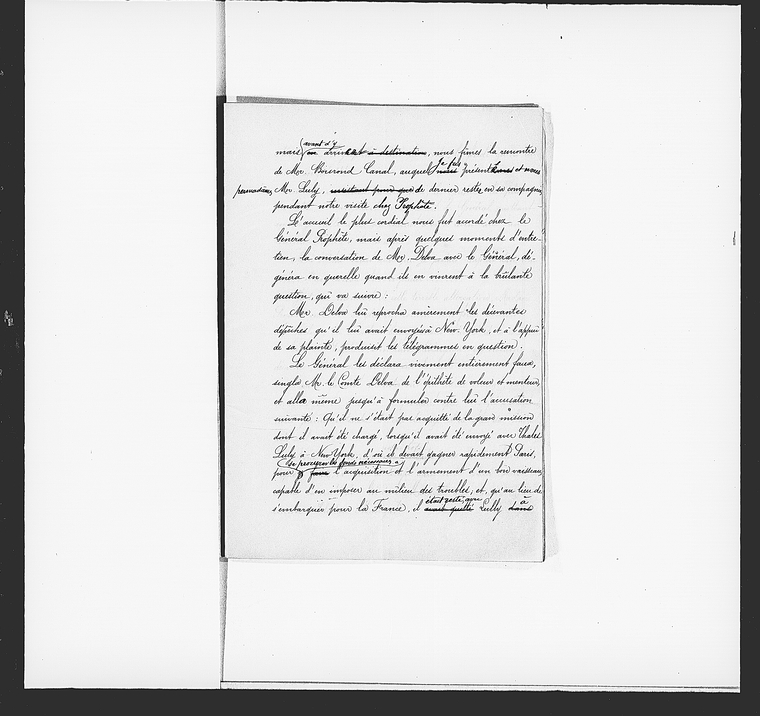 mais avant d'y arriver à destination, nous fîmes la rencontre
de Mr. Boisrond Canal, auquel je fus présenté et nous
persuadâmes Mr. Lully, de dernier rester en sa compagnie
pendant notre visite chez Prophète.
L'accueil le plus cordial nous fut acordé chez le
Général Prophète, mais après quelques moments d'entre-
tien, la conversation de Mr. Delva avec le Général, dé-
généra en querelle quand ils en vinrent à la brûlante
question, qui va suivre :
Mr. Delva lui reprocha amèrement les décevantes
dépêches qu'il lui avait envoyés à New-York, et à l'appui
de sa plainte, produisit les télégrammes en question.
Le Général les déclara vivement entièrement faux,
singla Mr. le Comte Delva de l'épithète de voleur et menteur,
et alla même jusqu'à formuler contre lui l'accusation
suivante : Qu'il ne s'était pas acquitté de la grave mission
dont il avait été chargé, lorsqu'il avait été envoyé avec Thalès
Luly à New York, d'où il devait gagner rapidement Paris,
pour se procurer les fonds nécessaires à l'acquisition et l'armement d'un bon vaisseau,
capable d'en imposer au milieu des troubles, et, qu'au lieu de
s'embarquer pour la France, il était resté avec Lully à